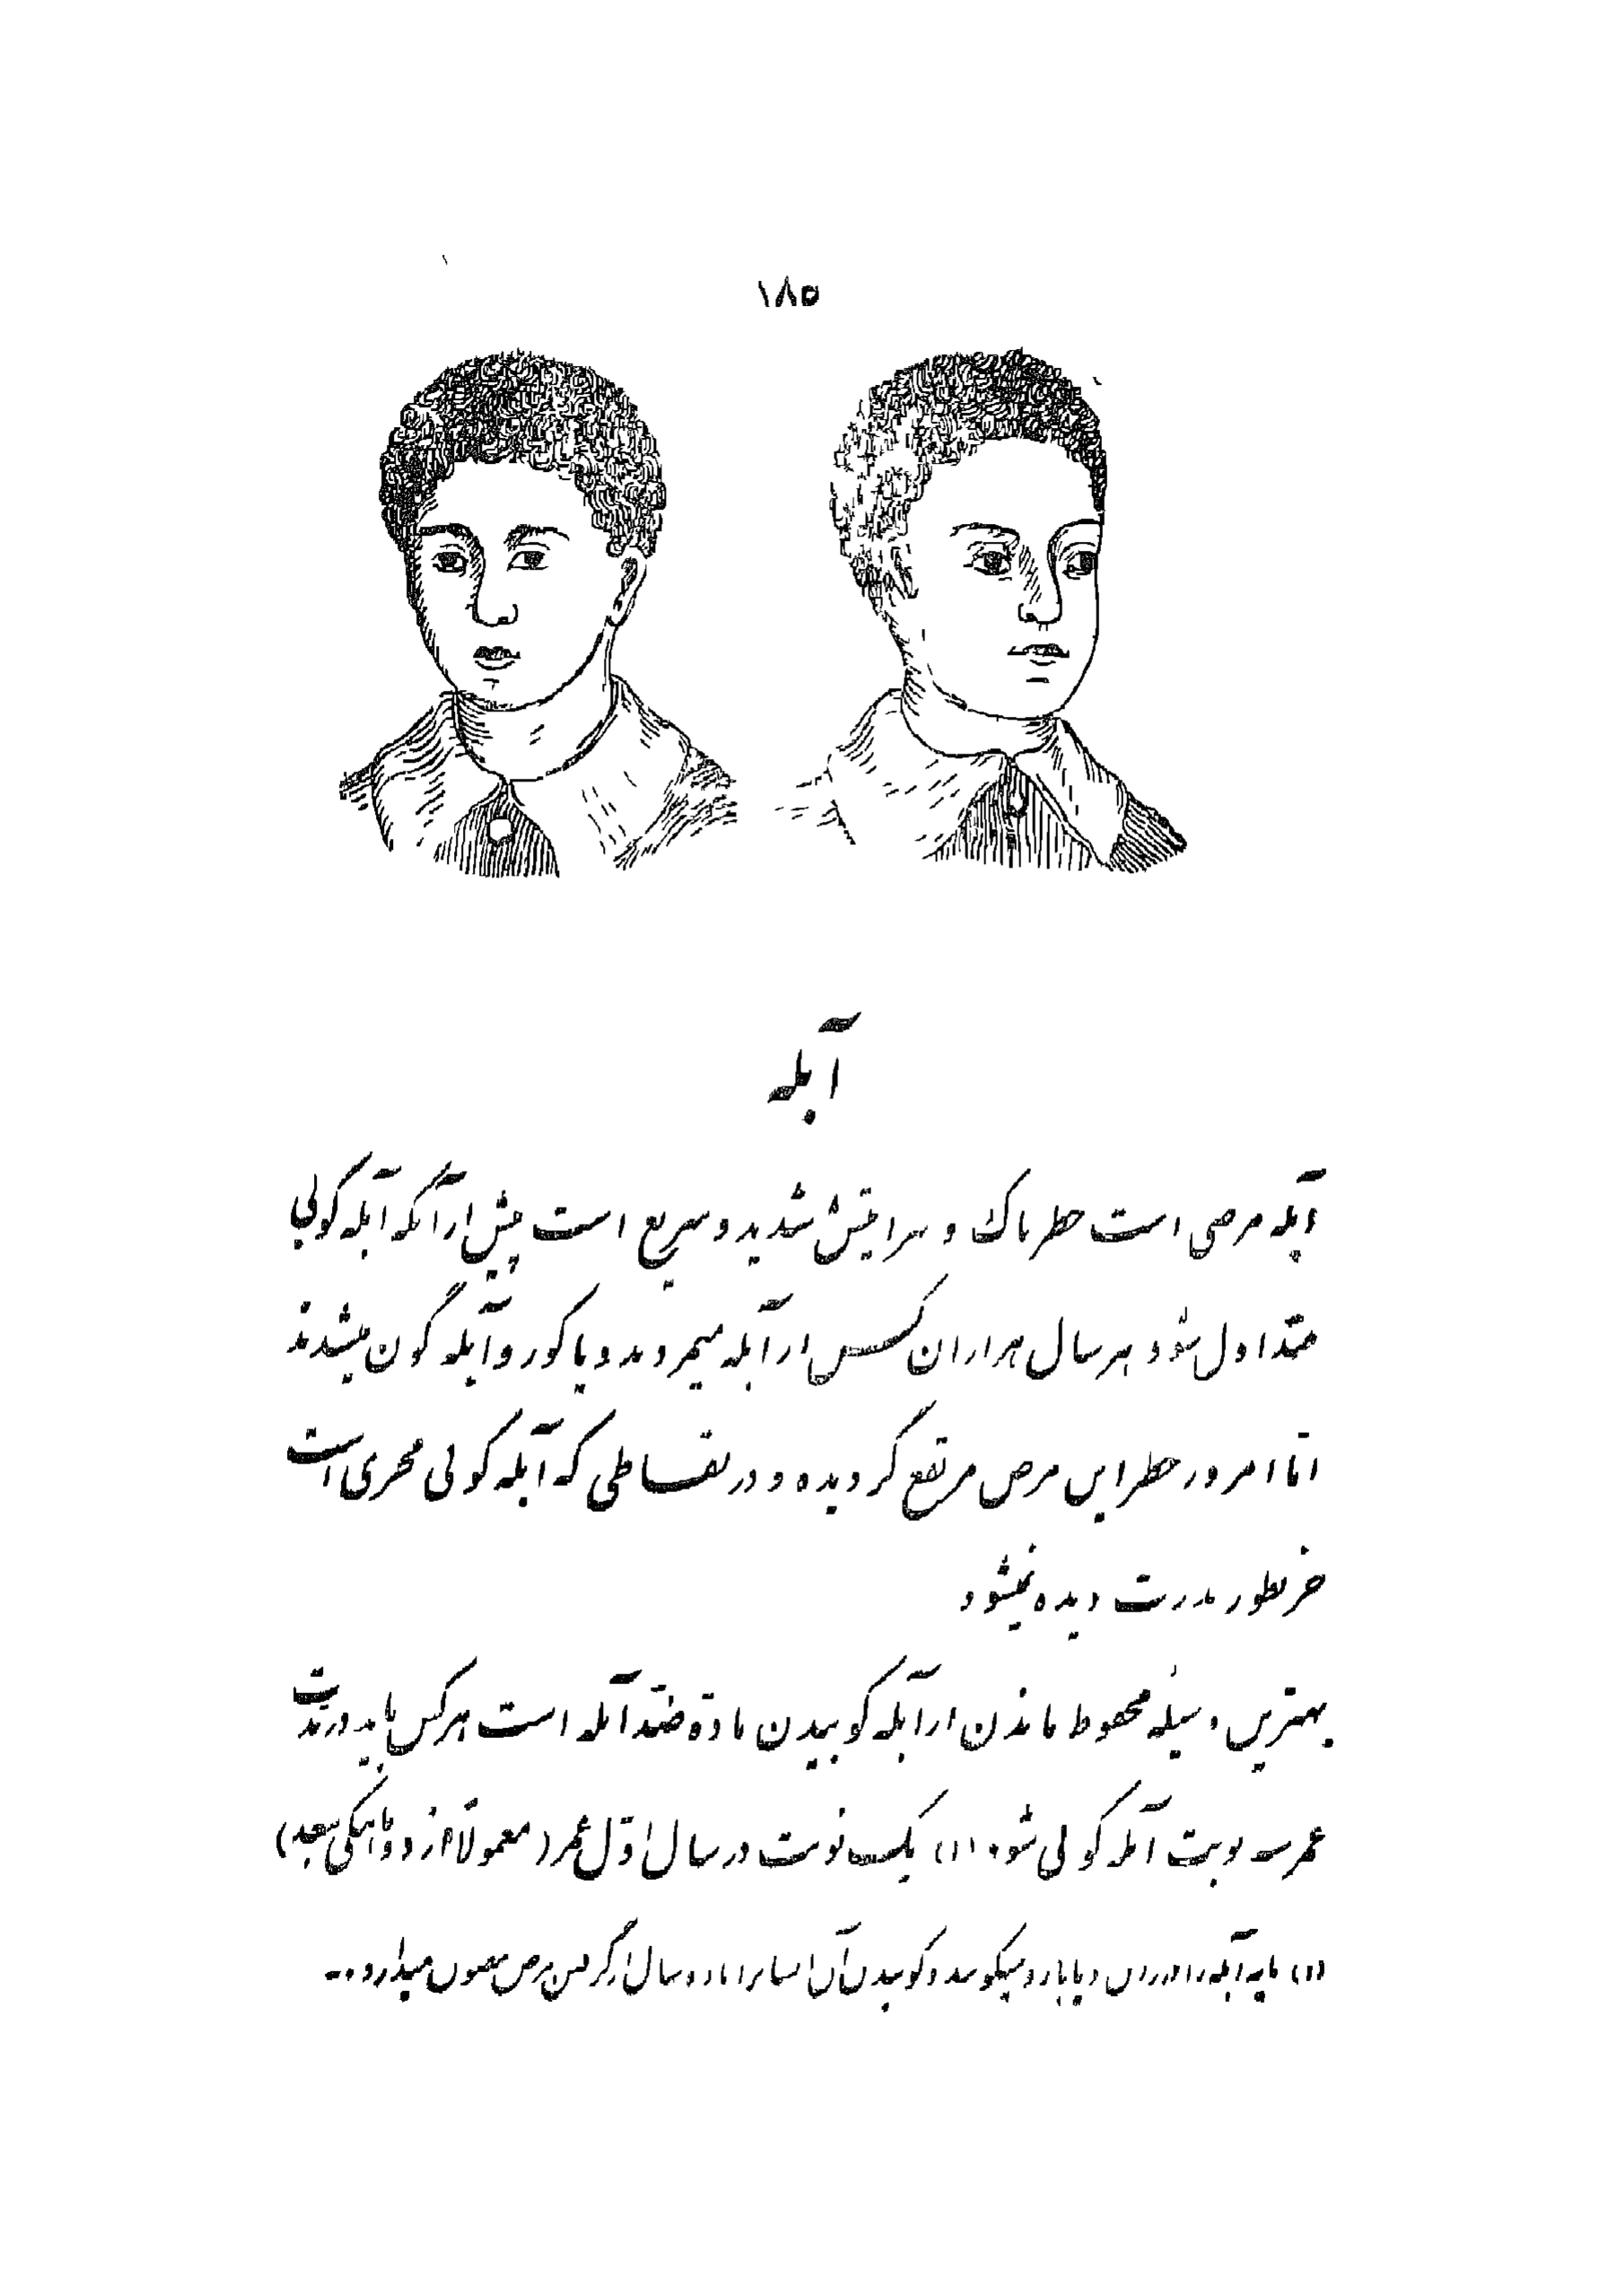 ۱۸۵
آبله
آبله مرضی است خطرناک و سرایتش شدید و سریع است پیش از آنکه آبله کوبی
متداول شود هر سال هزاران کس از آبله میمردند و یا کور و آبله گون میشدند
امّا امروز خطر این مرض مرتفع گردیده و در نقاطی که آبله کوبی مجری است
جز بطور ندرت دیده نمیشود
بهترین وسیلهٔ محفوظ ماندن از آبله کوبیدن مادّهٔ ضدّ آبله است هر کس باید در مدّت
عمر سه نوبت آبله کوبی شود (۱) یک نوبت در سال اوّل عمر (معمولاً از دو ماهگی ببعد)
(۱) مایه آبله را در ران و یا بازو میکوبند و کوبیدن آن انسان را تا ده سال از گرفتن مرض مصون میدارد.